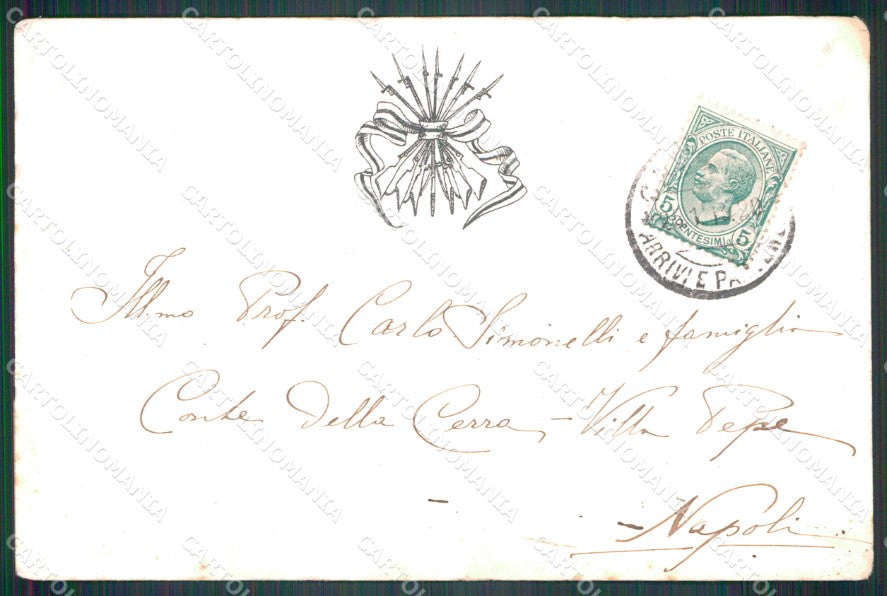 POSTE ITALIANE
5 CENTESIMI 5
ARRIVI E PA
Ill.mo Prof. Carlo Simonelli e famiglia
Conte Della Cerra - Villa Pepe
- Napoli -
CARTOLINOMANIA